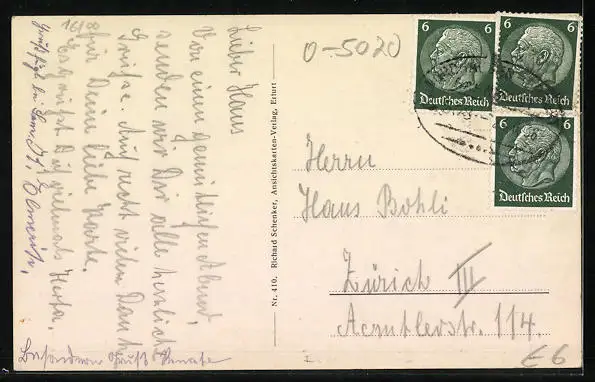 16/8
Lieber Hans
Von einem gemütlichen Abend,
senden wir Dir alle herzliche
Grüsse. Auch recht vielen Dank
für Deine liebe Karte.
Es grüsst Dich vielmals Herta.
Besondern Gruß Renate
Nr. 410. Richard Schenker, Ansichtskarten-Verlag, Erfurt
0-5020
6 6
Deutsches Reich
6 6
Deutsches Reich
6 6
Deutsches Reich
Herrn
Hans Bohli
Zürich III
Aemtlerstr. 114.
E6